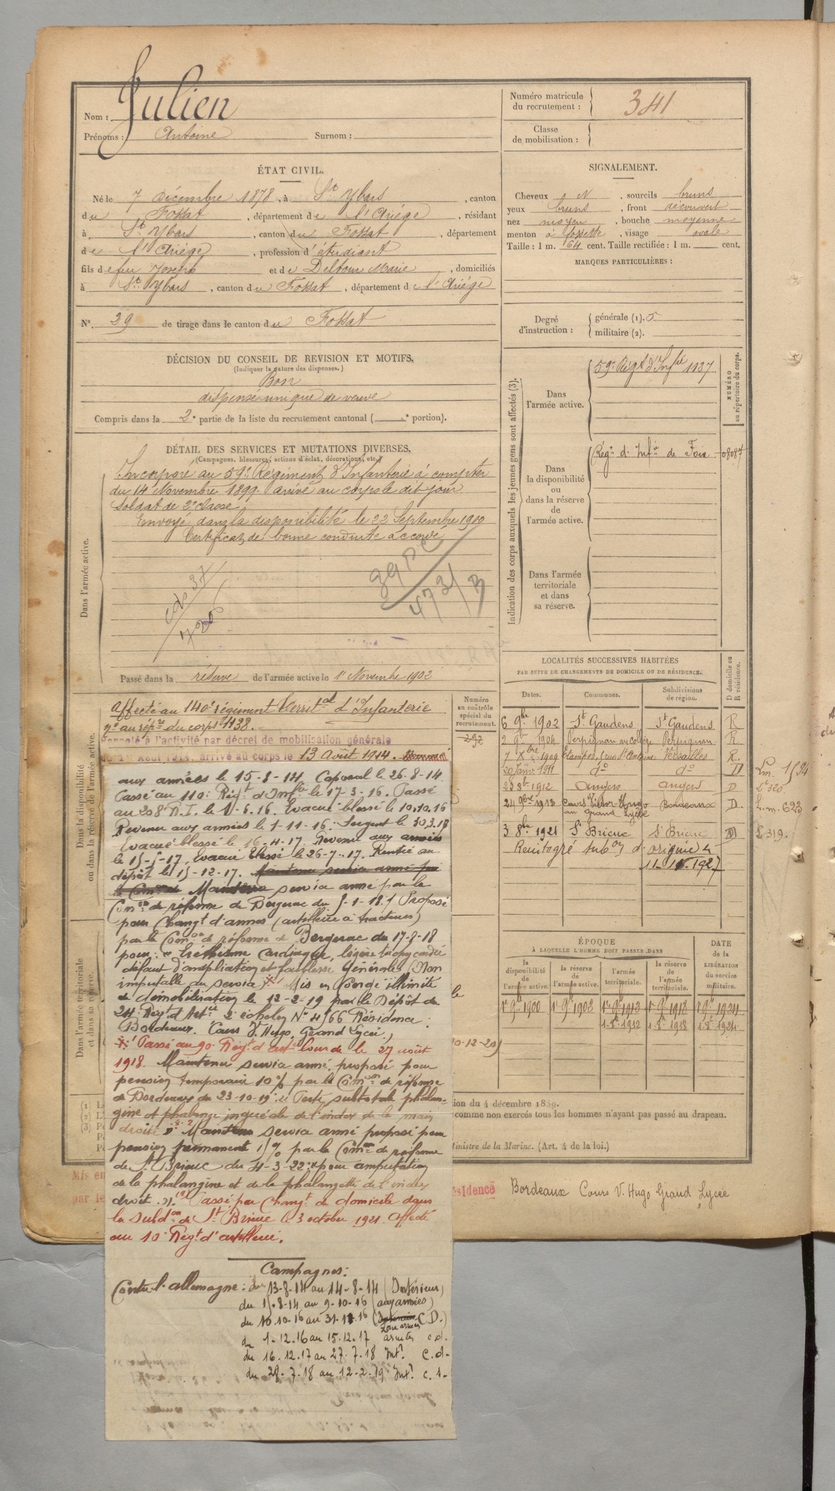 Nom : Julien
Prénoms : Antoine Surnom :
Numéro matricule du recrutement : 341
Classe de mobilisation :
ÉTAT CIVIL.
Né le 7 Décembre 1878, à St Ybars, canton
du Fossat, département de l'Ariége, résidant
à St Ybars, canton du Fossat, département
de l'Ariége, profession d'étudiant
fils de feu Joseph et de Delhom Marie, domiciliés
à St Ybars, canton du Fossat, département de l'Ariége
N° 29 de tirage dans le canton du Fossat
SIGNALEMENT.
Cheveux N, sourcils bruns
yeux bruns, front découvert
nez moyen, bouche moyenne
menton à fossette, visage ovale
Taille : 1 m. 64 cent. Taille rectifiée : 1 m. cent.
MARQUES PARTICULIÈRES :
Degré d'instruction : générale (1). 5
militaire (2).
DÉCISION DU CONSEIL DE REVISION ET MOTIFS.
(Indiquer la nature des dispenses.)
Bon
dispensé unique de veuve
Compris dans la 2e partie de la liste du recrutement cantonal ( portion).
DÉTAIL DES SERVICES ET MUTATIONS DIVERSES.
(Campagnes, blessures, actions d'éclat, décorations, etc.)
Incorporé au 59e Régiment d'Infanterie à compter
du 14 Novembre 1899. Arrivé au corps le dit jour
Soldat de 2e classe.
Envoyé dans la disponibilité le 22 Septembre 1900
Certificat de bonne conduite accordé
Dans l'armée active.
Passé dans la réserve de l'armée active le 1er Novembre 1902
Indication des corps auxquels les jeunes gens sont affectés (3).
NUMÉRO au répertoire du corps.
Dans l'armée active.
59e Régt d'Infie 1137
Dans la disponibilité ou dans la réserve de l'armée active.
Régt d'Infie de Foix
Dans l'armée territoriale et dans sa réserve.
LOCALITÉS SUCCESSIVES HABITÉES
PAR SUITE DE CHANGEMENTS DE DOMICILE OU DE RÉSIDENCE.
Dates. Communes. Subdivisions de région. D domicile ou R résidence.
6 9bre 1902 St Gaudens St Gaudens R
Perpignan au collège Perpignan R
Versailles R.
do do D
1912 Angers Angers D
Cours Victor Hugo au Grand Lycée Bordeaux D.
3 8bre 1921 St Brieuc St Brieuc D
Réintégré
Numéro au contrôle spécial du recrutement.
ÉPOQUE
À LAQUELLE L'HOMME DOIT PASSER DANS
la disponibilité de l'armée active. la réserve de l'armée active. l'armée territoriale. la réserve de l'armée territoriale.
DATE de la LIBÉRATION du service militaire.
Dans la disponibilité ou dans la réserve de l'armée active.
Dans l'armée territoriale et dans sa réserve.
Affecté au 140e régiment territal d'Infanterie
no au répre du corps 4438.
Rappelé à l'activité par décret de mobilisation générale
du 1er Août 1914, arrivé au corps le 13 Août 1914.
aux armées le 15-8-14. Caporal le 26-8-14.
Passé au 110e Régt d'Infie le 17-3-16. Passé
au 208e R.I. le 1-6-16. Evacué blessé le 10.10.16
Revenu aux armées le 1-11-16. Sergent le
Evacué blessé le 16-4-17. Revenu aux armées
le 15-5-17, évacué blessé le 26-7-17. Rentré au
dépôt le 15-12-17.
Maintenu service armé par la
Comon de réforme de Bergerac du 5-1-18. Proposé
pour changt d'armes (artillerie à tracteurs)
par la Comon de réforme de Bergerac du 17-8-18
pour : éréthisme cardiaque, légère tachycardie
défaut d'ampliation et faiblesse générale (Non
imputable au service). Mis en congé illimité
de démobilisation le 12-2-19 par le Dépôt du
24e Régt d'Artie 2e échelon No 4166 Résidence :
Bordeaux. Cours V. Hugo, Grand Lycée.
Passé au 90e Régt d'artie lourde le 27 août
1918. Maintenu service armé, proposé pour
pension temporaire 10% par la Comon de réforme
de Bordeaux du 23-10-19 : Perte subtotale phalangine
et phalange unguéale de l'index de la main
droite. Maintenu service armé proposé pour
pension permanent 15% par la Comon de réforme
de St Brieuc du 4-3-22 : pour amputation
de la phalangine et de la phalangette de l'index
droit. Passé par changt de domicile dans
la subdon de St Brieuc le 3 octobre 1921. Affecté
au 10e Régt d'artillerie.
Campagnes :
Contre l'allemagne : du 13-8-14 au 14-8-14 (Intérieur)
du 15-8-14 au 9-10-16 (aux armées)
du 10.10.16 au C.D.)
du 1-12.16 au 15.12.17 armées c.d.
du 16.12.17 au 27.7.18 Intr. c.d.
du 28-7-18 au 12-2-19 Intr. c.s.
ion du 4 décembre 1889.
comme non exercés tous les hommes n'ayant pas passé au drapeau.
Ministre de la Marine. (Art. 4 de la loi.)
Mis en
par le
ésidence Bordeaux Cours V. Hugo Grand Lycée